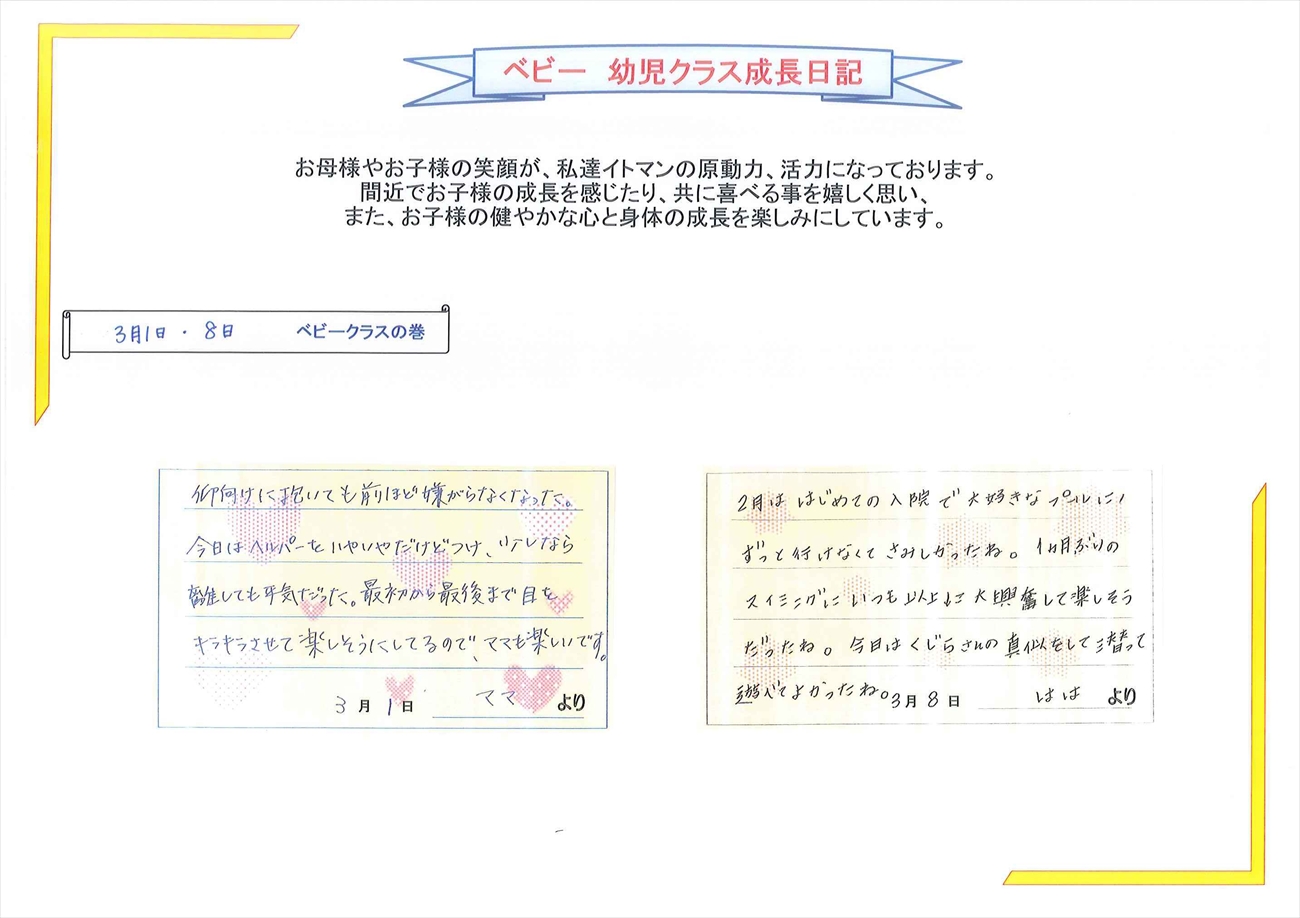 ベビー 幼児クラス成長日記
お母様やお子様の笑顔が、私達イトマンの原動力、活力になっております。
間近でお子様の成長を感じたり、共に喜べる事を嬉しく思い、
また、お子様の健やかな心と身体の成長を楽しみにしています。
3月1日・8日 ベビークラスの巻
仰向けに抱いても前ほど嫌がらなくなった。
今日はヘルパーをいやいやだけどつけ、少しなら
離しても平気だった。最初から最後まで目を
キラキラさせて楽しそうにしてるので、ママも楽しいです。
3月1日 ママより
2月は はじめての入院で大好きなプールに
ずっと行けなくてさみしかったね。1ヶ月ぶりの
スイミングにいつも以上に大興奮して楽しそう
だったね。今日はくじらさんの真似をして潜って
遊べてよかったね。3月8日 ははより